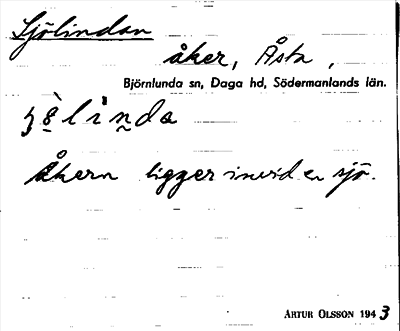 Sjölindan
åker, Åsta,
Björnlunda sn, Daga hd, Södermanlands län.
Åkern ligger invid en sjö.
ARTUR OLSSON 1943